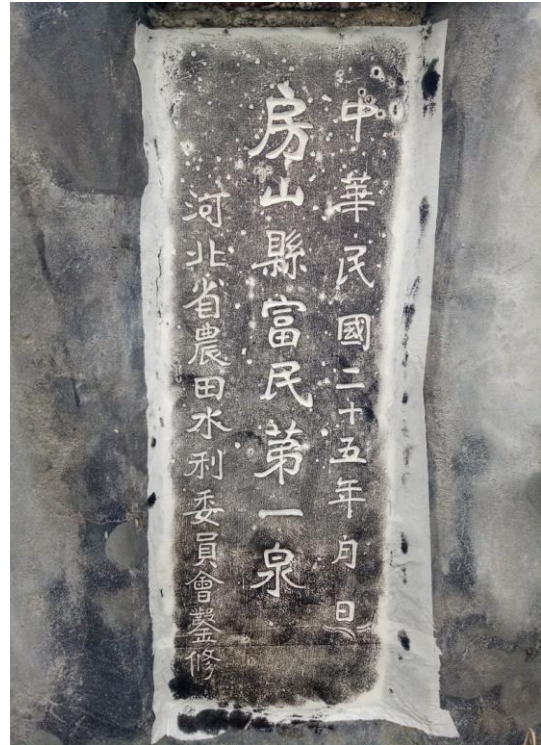 中華民國二十五年月日
房山縣富民苐一泉
河北省農田水利委員會鑿修